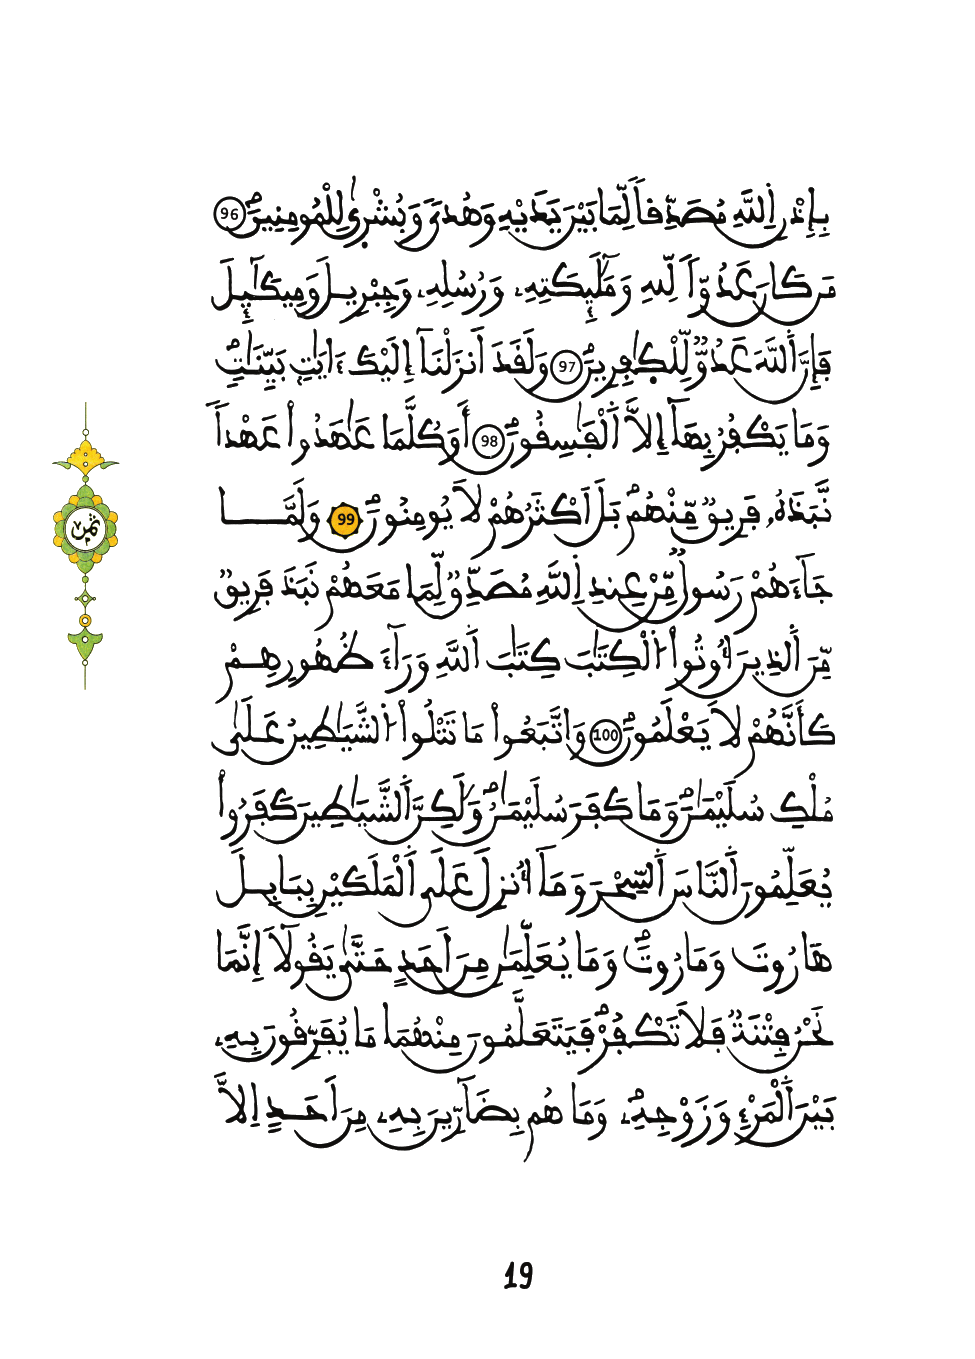 بِإِذْنِ اِ۬للَّهِ مُصَدِّقاٗ لِّمَا بَيْنَ يَدَيْهِ وَهُدىٗ وَبُشْر۪يٰ لِلْمُومِنِينَۖ 96
مَن كَانَ عَدُوّاٗ لِّلهِ وَمَلَٰٓئِكَتِهِۦ وَرُسُلِهِۦ وَجِبْرِيلَ وَمِيكَٰٓئِلَ
فَإِنَّ اَ۬للَّهَ عَدُوّٞ لِّلْكٰ۪فِرِينَۖ 97 وَلَقَدَ اَنزَلْنَآ إِلَيْكَ ءَايَٰتِۢ بَيِّنَٰتٖۖ
وَمَا يَكْفُرُ بِهَآ إِلَّا اَ۬لْفَٰسِقُونَۖ 98 أَوَكُلَّمَا عَٰهَدُواْ عَهْداٗ
نَّبَذَهُۥ فَرِيقٞ مِّنْهُمۖ بَلَ اَكْثَرُهُمْ لَا يُومِنُونَۖ 99 وَلَمَّا
جَآءَهُمْ رَسُولٞ مِّنْ عِندِ اِ۬للَّهِ مُصَدِّقٞ لِّمَا مَعَهُمْ نَبَذَ فَرِيقٞ
مِّنَ اَ۬لذِينَ أُوتُواْ اُ۬لْكِتَٰبَ كِتَٰبَ اَ۬للَّهِ وَرَآءَ ظُهُورِهِمْ
كَأَنَّهُمْ لَا يَعْلَمُونَۖ 100 وَاتَّبَعُواْ مَا تَتْلُواْ اُ۬لشَّيَٰطِينُ عَلَيٰ
مُلْكِ سُلَيْمَٰنَۖ وَمَا كَفَرَ سُلَيْمَٰنُۖ وَلَٰكِنَّ اَ۬لشَّيَٰطِينَ كَفَرُواْ
يُعَلِّمُونَ اَ۬لنَّاسَ اَ۬لسِّحْرَ وَمَآ أُنزِلَ عَلَي اَ۬لْمَلَكَيْنِ بِبَابِلَ
هَٰرُوتَ وَمَٰرُوتَۖ وَمَا يُعَلِّمَٰنِ مِنَ اَحَدٍ حَتَّيٰ يَقُولَآ إِنَّمَا
نَحْنُ فِتْنَةٞ فَلَا تَكْفُرْۖ فَيَتَعَلَّمُونَ مِنْهُمَا مَا يُفَرِّقُونَ بِهِۦ
بَيْنَ اَ۬لْمَرْءِ وَزَوْجِهِۖۦ وَمَا هُم بِضَآرِّينَ بِهِۦ مِنَ اَحَدٍ اِلَّا
ثمن
19